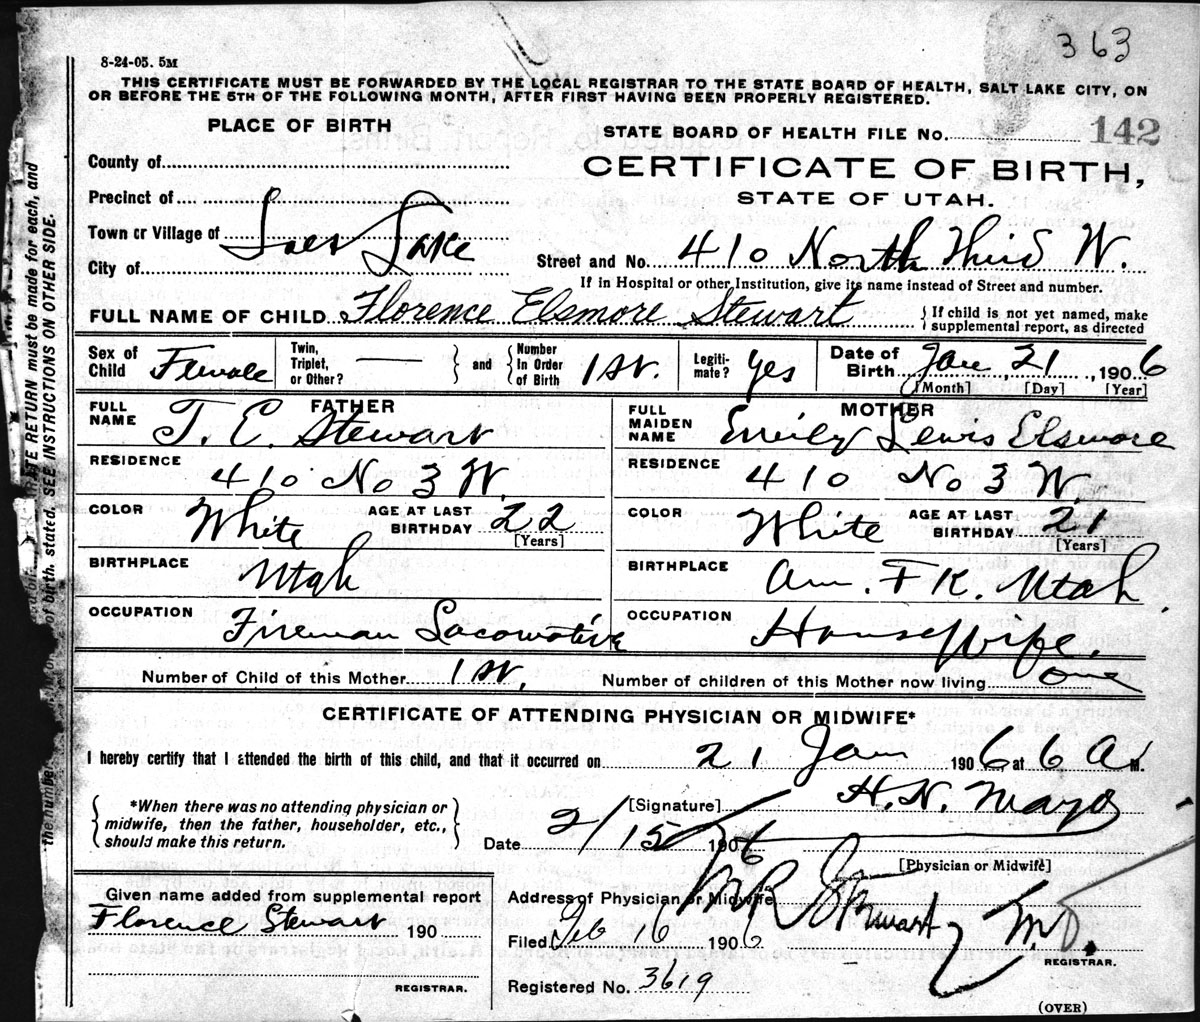 363
8-24-05. 5M
THIS CERTIFICATE MUST BE FORWARDED BY THE LOCAL REGISTRAR TO THE STATE BOARD OF HEALTH, SALT LAKE CITY, ON
OR BEFORE THE 5TH OF THE FOLLOWING MONTH, AFTER FIRST HAVING BEEN PROPERLY REGISTERED.
PLACE OF BIRTH
STATE BOARD OF HEALTH FILE No. 142
County of
CERTIFICATE OF BIRTH,
Precinct of
STATE OF UTAH.
Town or Village of
Lake
City of
Street and No. 410 North Third W.
If in Hospital or other Institution, give its name instead of Street and number.
FULL NAME OF CHILD Florence Elsmore Stewart { If child is not yet named, make
supplemental report, as directed
Sex of Child Female
Twin, Triplet, or Other? — } and { Number In Order of Birth 1st.
Legiti-mate? Yes
Date of Birth Jan 21, 1906
[Month] [Day] [Year]
FATHER
FULL NAME T. E. Stewart
RESIDENCE 410 No 3 W.
COLOR White AGE AT LAST BIRTHDAY 22
[Years]
BIRTHPLACE Utah
OCCUPATION Fireman Locomotive
MOTHER
FULL MAIDEN NAME Emily Lewis Elsmore
RESIDENCE 410 No 3 W.
COLOR White AGE AT LAST BIRTHDAY 21
[Years]
BIRTHPLACE Am. F K. Utah.
OCCUPATION Housewife.
Number of Child of this Mother 1st. Number of children of this Mother now living one
CERTIFICATE OF ATTENDING PHYSICIAN OR MIDWIFE*
I hereby certify that I attended the birth of this child, and that it occurred on 21 Jan 1906, at 6 A. M.
{ *When there was no attending physician or
midwife, then the father, householder, etc.,
should make this return. }
[Signature] H. N. Mayo
Date 2/15 1906
[Physician or Midwife]
Given name added from supplemental report
Florence Stewart 190
REGISTRAR.
Address of Physician or Midwife
Stewart M.D.
Filed Feb 16 1906
REGISTRAR.
Registered No. 3619
(OVER)
RATE RETURN must be made for each, and
of birth, stated. SEE INSTRUCTIONS ON OTHER SIDE.
the number